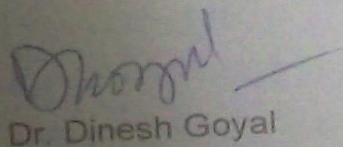 Dr. Dinesh Goyal